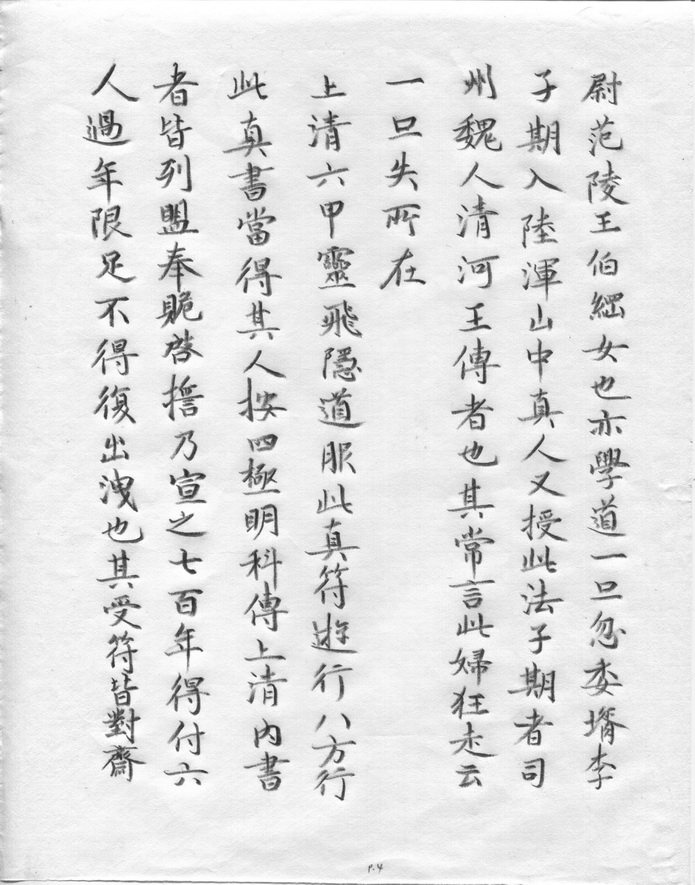 尉范陵王伯綱女也亦學道一旦忽委壻李
子期入陸渾山中真人又授此法子期者司
州魏人清河王傳者也其常言此婦狂走云
一旦失所在
上清六甲靈飛隱道服此真符遊行八方行
此真書當得其人按四極明科傳上清內書
者皆列盟奉贂啓擔乃宣之七百年得付六
人過年限足不得復出洩也其受符皆對齋
P.4